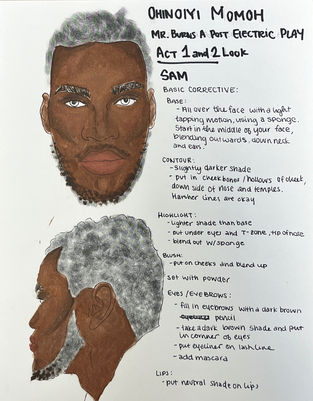 OHINOIYI MOMOH
MR. BURNS A POST ELECTRIC PLAY
ACT 1 and 2 LOOK
SAM
BASIC CORRECTIVE:
BASE:
- All over the face with a light
tapping motion, using a sponge.
Start in the middle of your face,
blending outwards, down neck
and ears.
CONTOUR:
- slightly darker shade
- put in cheekbones / hollows of cheek,
down side of nose and temples.
Harsher lines are okay
HIGHLIGHT:
- lighter shade than base
- put under eyes and T-zone, tip of nose
- blend out w/ sponge
BLUSH:
- put on cheeks and blend up
set with powder
EYES / EYEBROWS:
- fill in eyebrows with a dark brown
pencil
- take a dark brown shade and put
in corner of eyes
- put eyeliner on lash line
- add mascara
LIPS:
- put neutral shade on lips